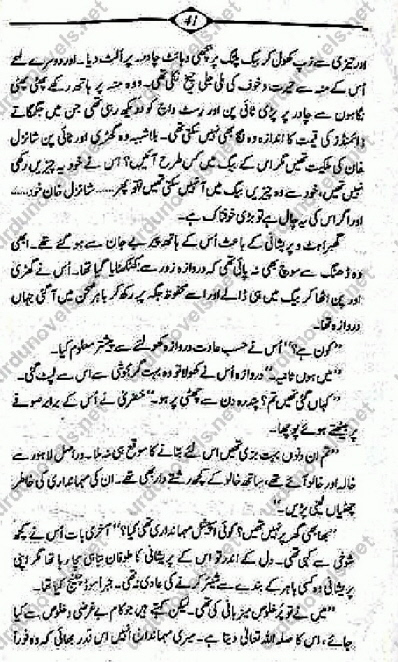 41
اور تیزی سے زپ کھول کر بیگ پلنگ پر بچھی وہائٹ چادر پر الٹ دیا۔ اور دوسرے لمحے
اُس کے منہ سے حیرت و خوف کی ملی جلی چیخ نکلی تھی۔ وہ منہ پر ہاتھ رکھے پھٹی پھٹی
نگاہوں سے چادر پر پڑی ٹائی پن اور رسٹ واچ کو دیکھ رہی تھی جن میں جگمگاتے
ڈائمنڈز کی قیمت کا اندازہ وہ لگا بھی نہیں سکتی تھی۔ بلاشبہ وہ گھڑی اور ٹائی پن شانزل
خان کی ملکیت تھیں مگر اس کے بیگ میں کس طرح آئیں؟ اس نے خود یہ چیزیں رکھی
نہیں تھیں، خود سے وہ چیزیں بیگ میں آ نہیں سکتی تھیں تو پھر ...... شانزل خان خود ......
اور اگر اس کی یہ چال ہے تو بڑی خوفناک ہے۔
گھبراہٹ و پریشانی کے باعث اُس کے ہاتھ پیر بے جان سے ہو گئے تھے۔ ابھی
وہ ڈھنگ سے سوچ بھی نہ پائی تھی کہ دروازہ زور سے کھٹکھٹایا گیا تھا۔ اُس نے گھڑی
اور پن اٹھا کر بیگ میں ہی ڈالے اور اسے محفوظ جگہ پر رکھ کر باہر صحن میں آ گئی جہاں
دروازہ تھا۔
”کون ہے؟“ اُس نے حسب عادت دروازہ کھولنے سے پیشتر معلوم کیا۔
”میں ہوں ثانیہ۔“ دروازہ اُس نے کھولا تو وہ بہت گرمجوشی سے اس سے لپٹ گئی۔
”کہاں گئی تھیں تم؟ پندرہ دن سے چھٹی پر ہو۔“ خضریٰ نے اُس کے برابر صوفے
پر بیٹھتے ہوئے پوچھا۔
”تم ان دنوں بہت بزی تھیں اس لئے بتانے کا موقع ہی نہ ملا۔ دراصل لاہور سے
خالہ اور خالو آئے تھے، ساتھ خالو کے کچھ رشتے دار بھی تھے۔ ان کی مہمانداری کی خاطر
چھٹیاں لینی پڑیں۔“
”بھابھی گھر پر نہیں تھیں؟ کوئی اسپیشل مہمانداری تھی کیا؟“ آخری بات اُس نے کچھ
شوخی سے کہی تھی۔ دل کے اندر تو اس کے پریشانی کا طوفان تباہی مچا رہا تھا مگر اپنی
پریشانی وہ کسی باہر کے بندے سے شیئر کرنے کی عادی نہ تھی۔ جبراً موڈ چینج کیا تھا۔
”میں نے تو پُرخلوص میزبانی کی تھی۔ لیکن کہتے ہیں جو کام بے غرضی و خلوص سے کیا
جائے، اس کا صلہ اللہ تعالیٰ دیتا ہے۔ میری مہمانداری انہیں اس قدر بھائی کہ وہ فوراً
urdunovels.net